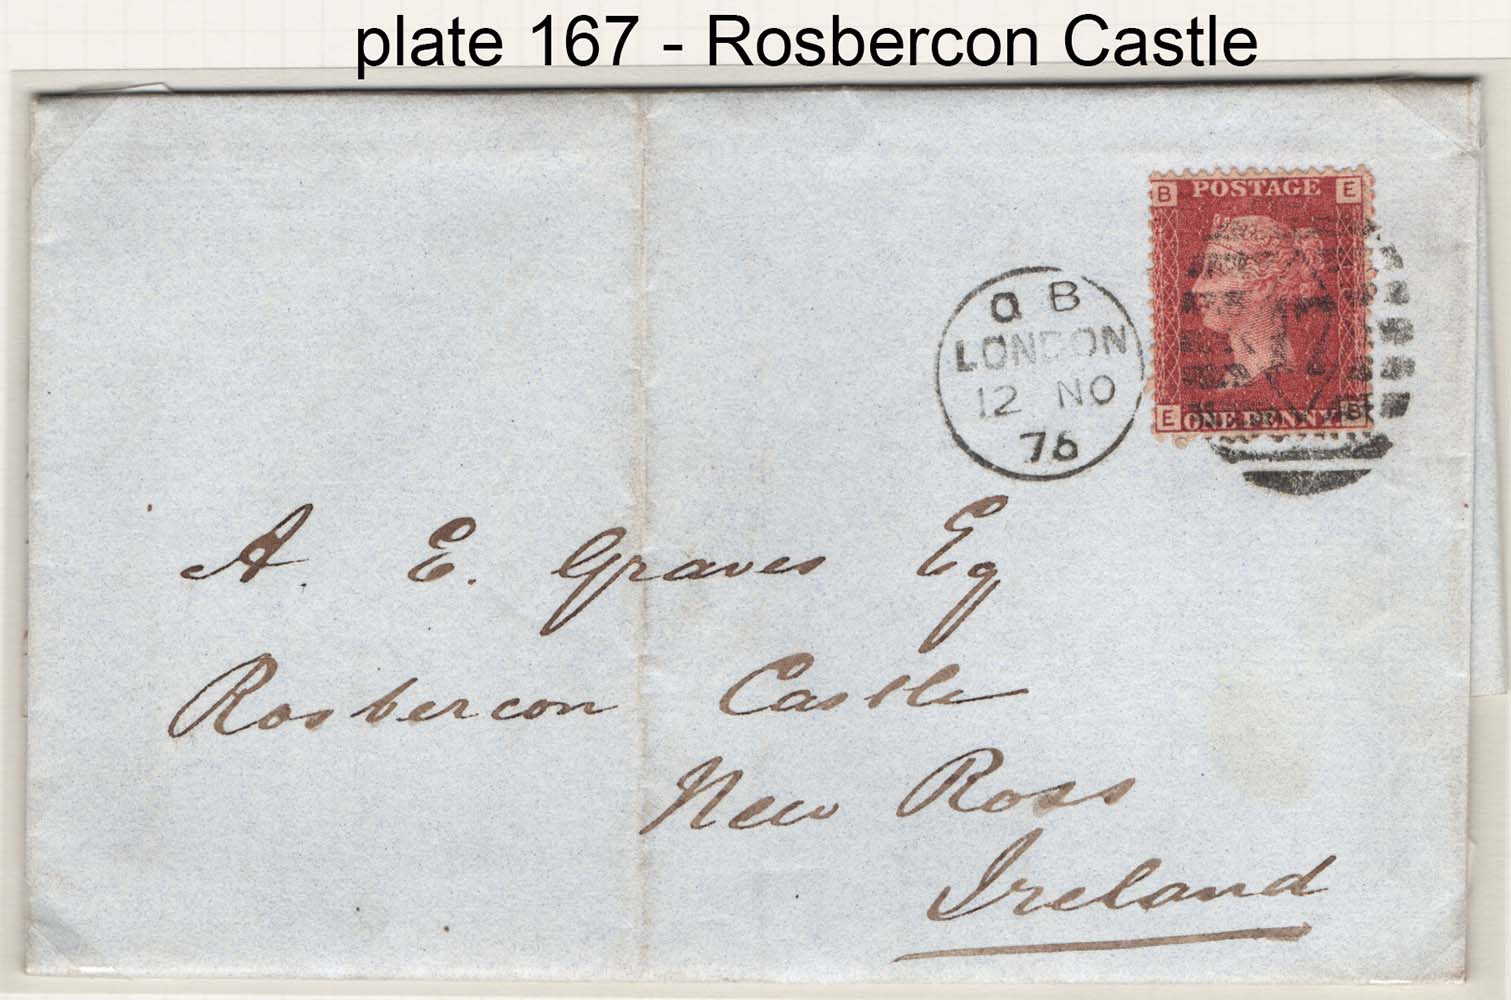 plate 167 - Rosbercon Castle
B POSTAGE E
Q B
LONDON
12 NO
76
E ONE PENNY B
A. E. Graves Eq
Rosbercon Castle
New Ross
Ireland